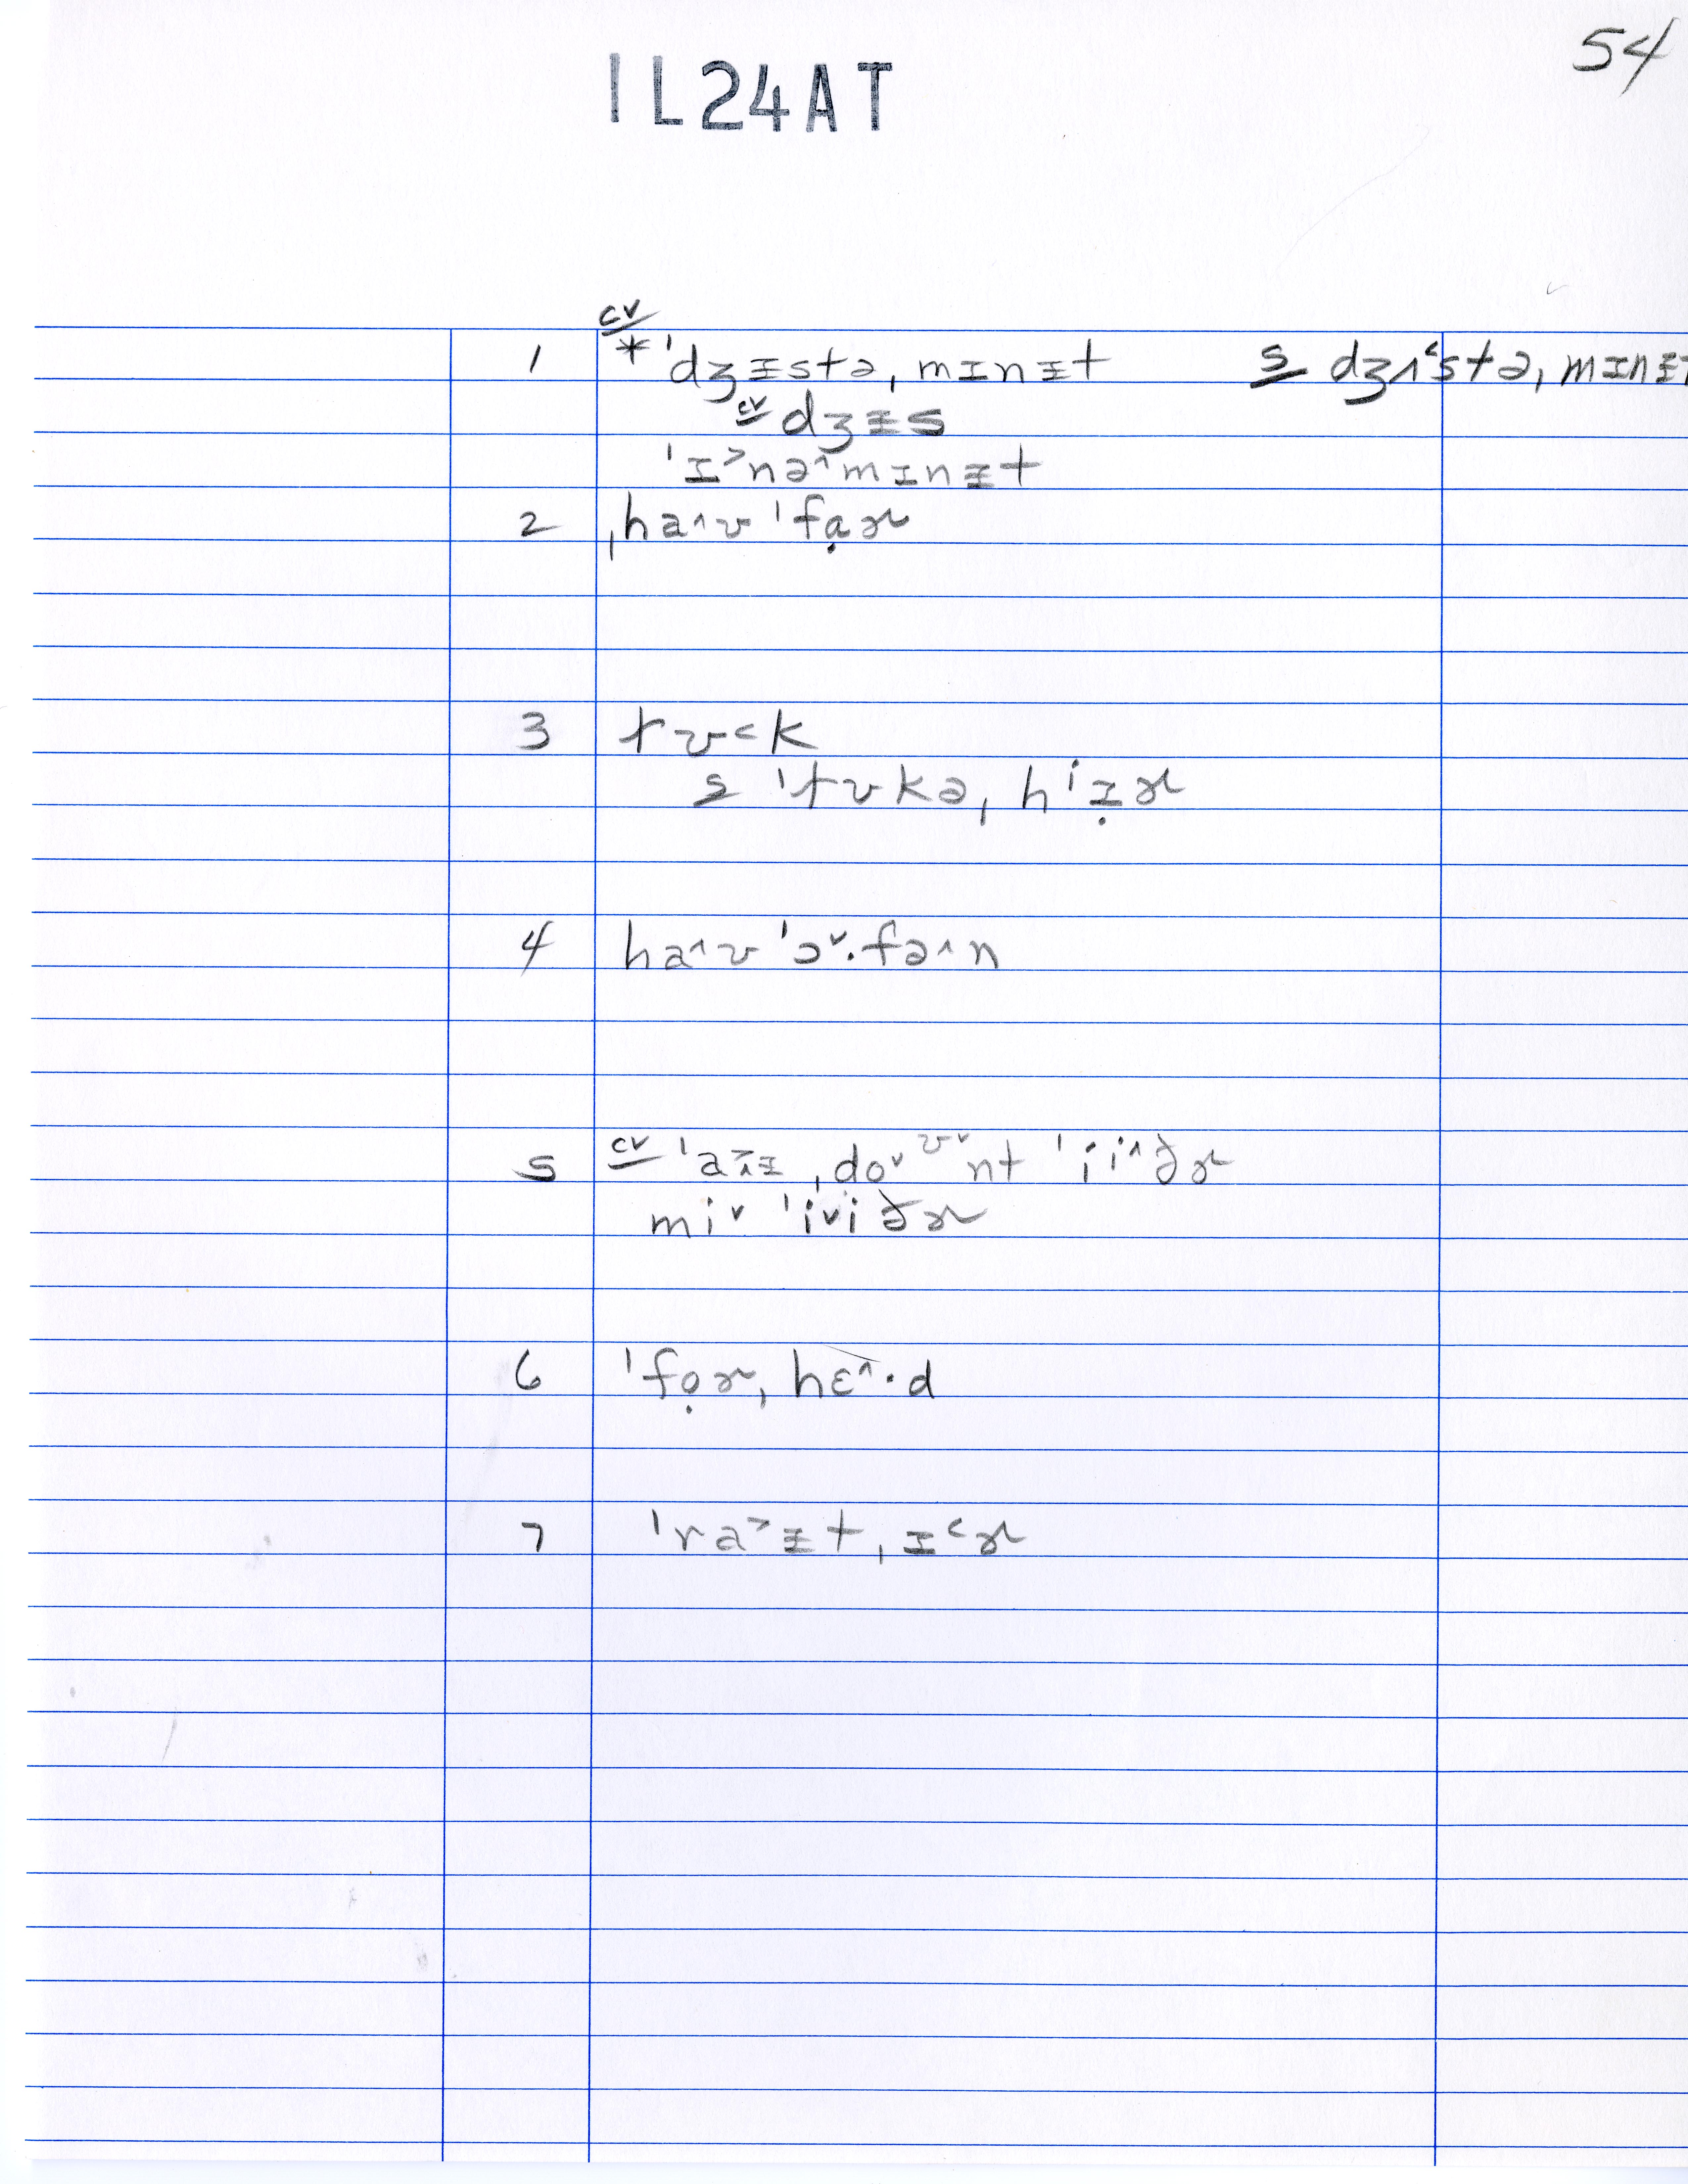 54
IL24AT
cv
1 * ˈdʒᵻstəˌmɪnᵻt s̲ dʒɪ˂stəˌmɪnᵻt
cv dʒᵻs
ˈɪ˃nə˄mɪnᵻt
2 ˌha˄ʊ ˈfɑ̣ɚ
3 tʊ˂k
s̲ ˈtʊkəˌhⁱɪ̣ɚ
4 ha˄ʊ ˈɔ˅·fə˄n
5 cv ˈa˃ɪᵻ ˌdo˅ʊ˅nt ˈii˄ðɚ
mi˅ ˈi˅iðɚ
6 ˈfọɚˌhɛ˄·d
7 ˈra˃ᵻtˌɪ˂ɚ